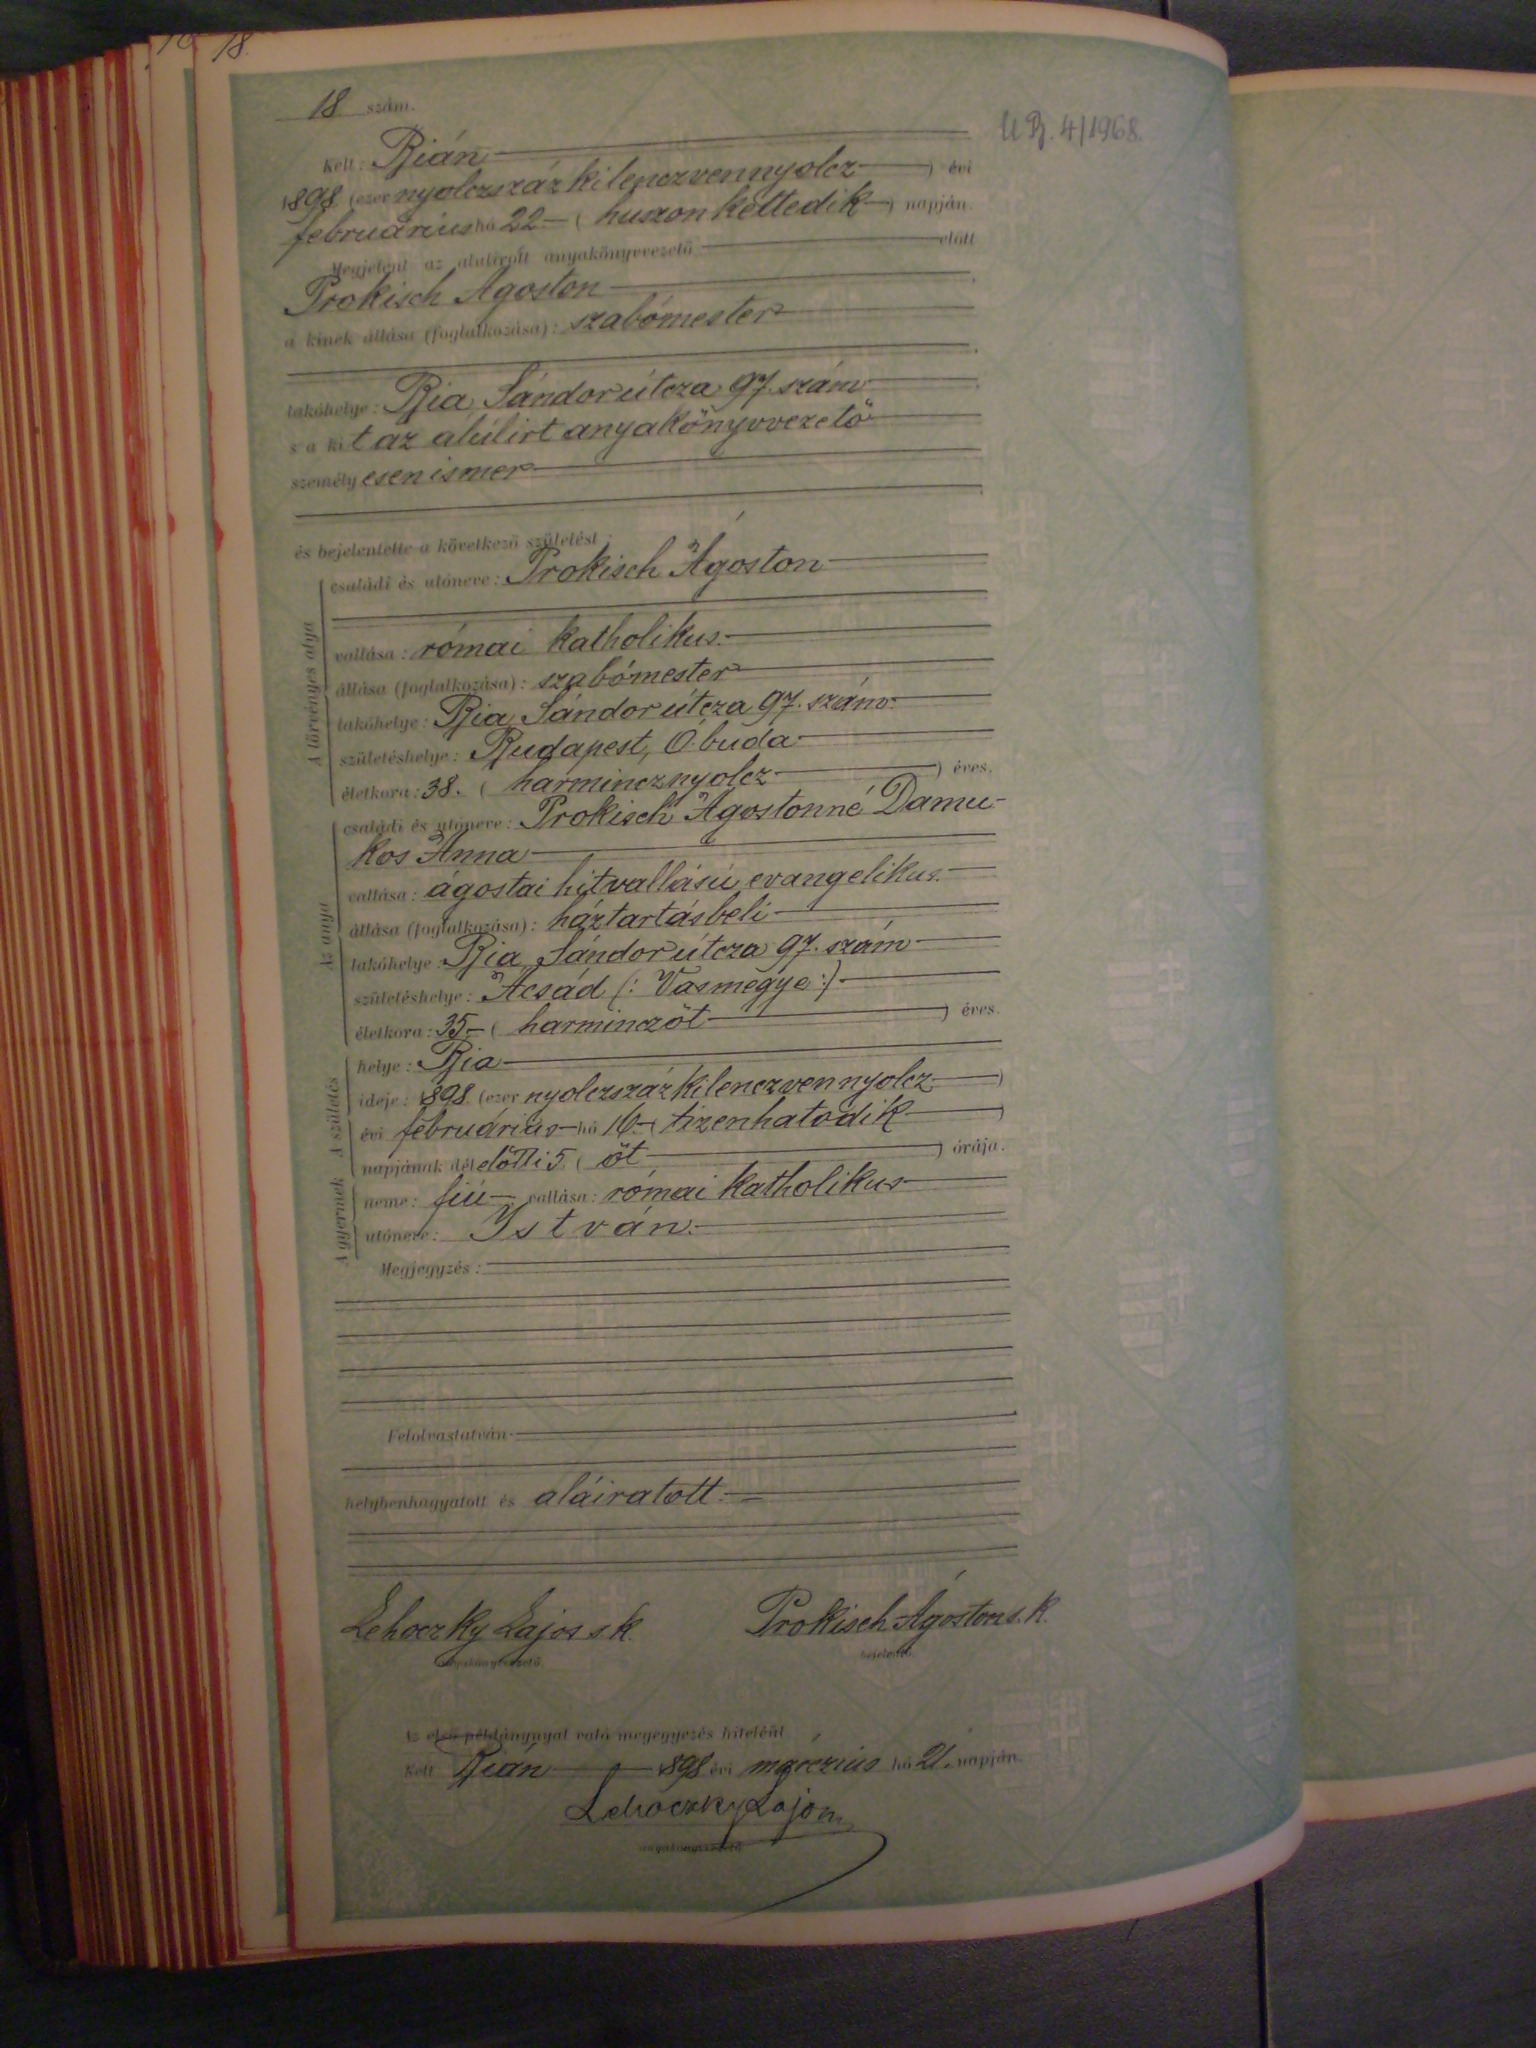 18.
18 szám.
U B. 4/1968.
Kelt: Bián
1898 (ezer nyolczszáz kilenczvennyolcz) évi
februárius hó 22 (huszonkettedik) napján.
Megjelent az alulírott anyakönyvvezető előtt
Prokisch Ágoston
a kinek állása (foglalkozása): szabómester
lakóhelye: Bia, Sándor útcza 97. szám
s a kit az alúlirt anyakönyvvezető
személyesen ismer
és bejelentette a következő születést:
A törvényes atya
családi és utóneve: Prokisch Ágoston
vallása: római katholikus.
állása (foglalkozása): szabómester
lakóhelye: Bia, Sándor útcza 97. szám.
születéshelye: Budapest, Ó.buda
életkora: 38. (harmincznyolcz) éves.
Az anya
családi és utóneve: Prokisch Ágostonné Damu-
kos Anna
vallása: ágostai hitvallású evangelikus.
állása (foglalkozása): háztartásbeli
lakóhelye: Bia, Sándor útcza 97. szám
születéshelye: Acsád (: Vasmegye :)
életkora: 35.- (harminczöt) éves.
A születés
helye: Bia
ideje: 1898. (ezer nyolczszáz kilenczvennyolcz)
évi februárius hó 16.- (tizenhatodik)
napjának délelőtti 5 (öt) órája.
A gyermek
neme: fiú vallása: római katholikus
utóneve: István.
Megjegyzés:
Felolvastatván
helybenhagyatott és aláiratott.
Lehoczky Lajos s k. Prokisch Ágoston s. k.
anyakönyvvezető. bejelentő.
Az első példánynyal való megegyezés hiteléül
Kelt Bián 1898 évi márczius hó 21. napján.
Lehoczky Lajos
anyakönyvvezető